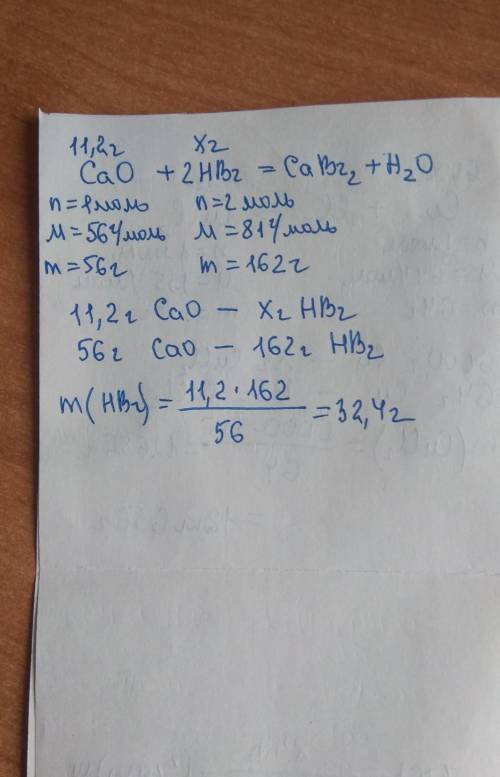 11,2г хг
CaO + 2HBr = CaBr₂ + H₂O
n = 1моль n = 2 моль
M = 56г/моль M = 81г/моль
m = 56г m = 162г
11,2г CaO — хг HBr
56г CaO — 162г HBr
m(HBr) = 11,2 · 162 / 56 = 32,4г